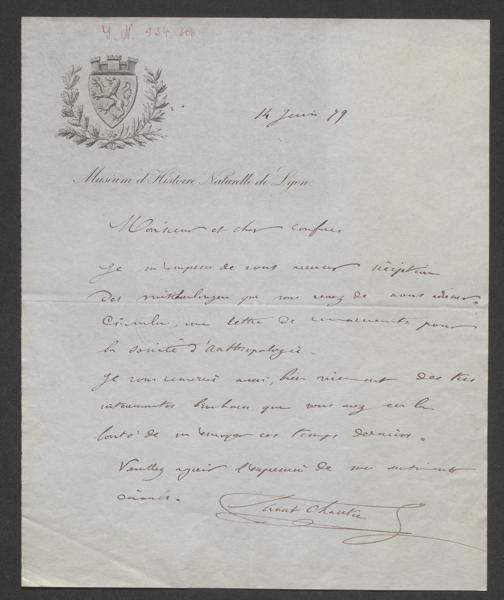 I. N. 134.306
14 Juin 79
Muséum d'Histoire Naturelle de Lyon.
Monsieur et cher confrère
Je m'empresse de vous accuser réception
des Mittheilungen que vous venez de nous
une lettre de remerciements pour
la société d'Anthropologie.
Je vous remercie aussi, bien vivement des très
intéressantes brochures que vous avez eu la
bonté de m'envoyer ces temps derniers.
Veuillez agréer l'expression de mes sentiments
Ernest Chantre